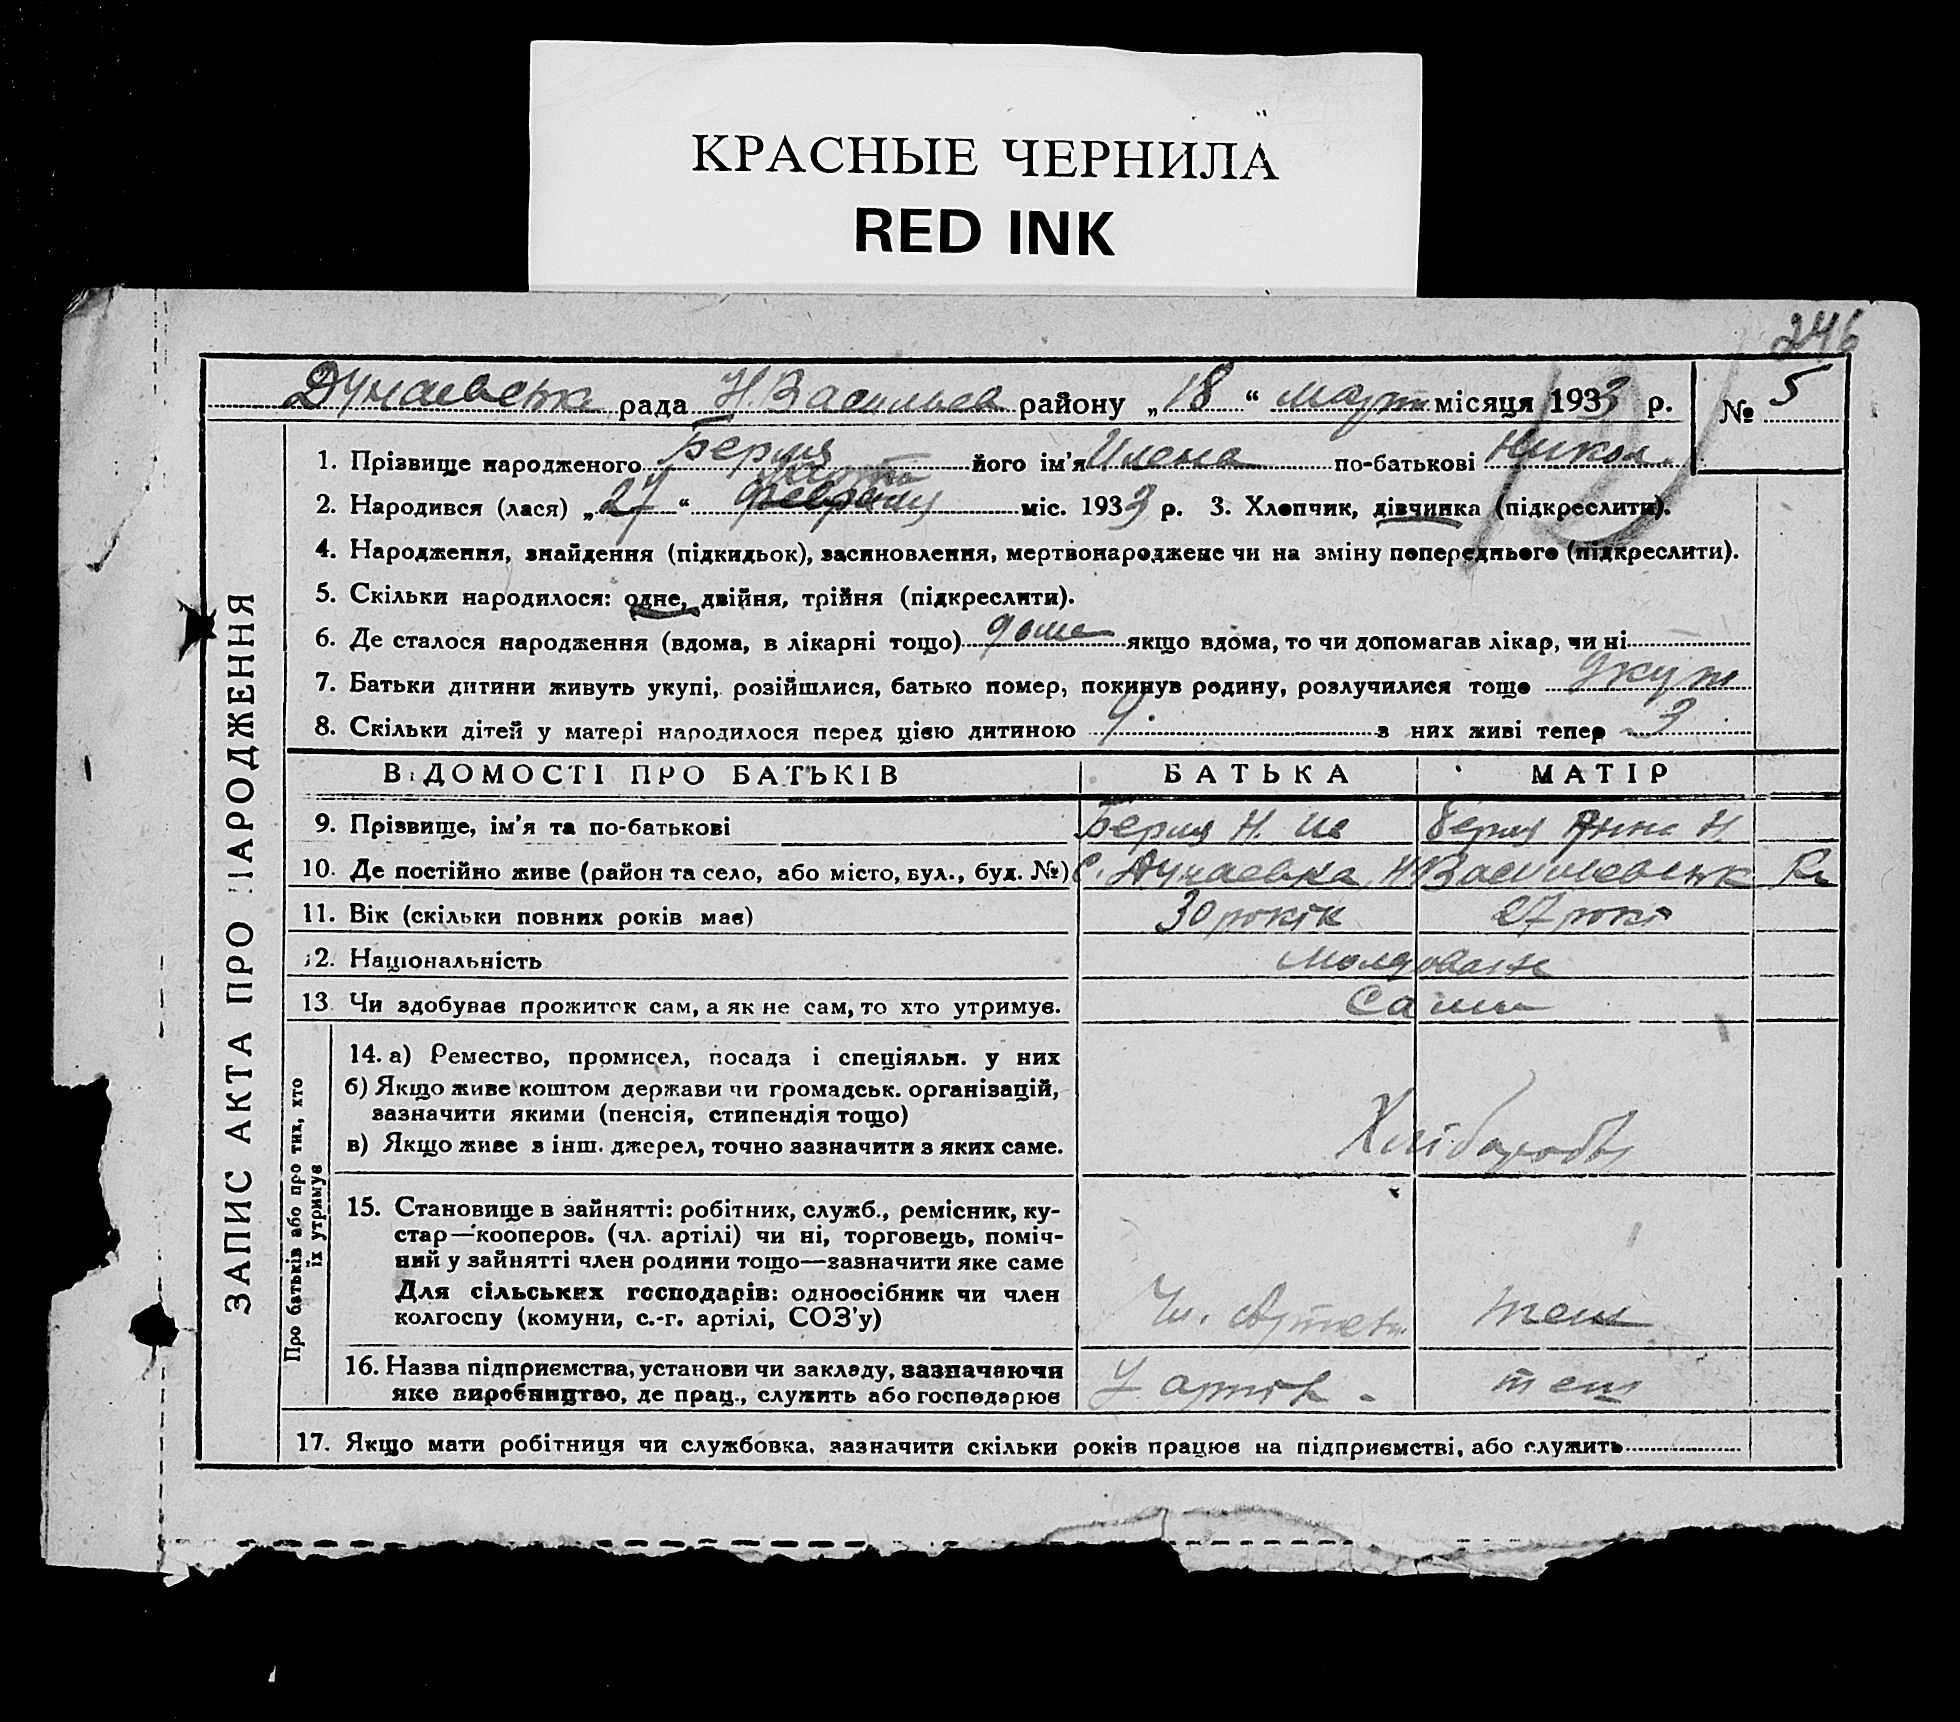 КРАСНЫЕ ЧЕРНИЛА
RED INK
246
Дунаевська рада Н. Васильев району „18“ март місяця 1933 р. № 5
1. Прізвище народженого Берля його ім'я Илена по-батькові Никол.
2. Народився (лася) „27“ февраля міс. 1933 р. 3. Хлопчик, дівчинка (підкреслити).
4. Народження, знайдення (підкидьок), засиновлення, мертвонароджене чи на зміну попереднього (підкреслити).
5. Скільки народилося: одне, двійня, трійня (підкреслити).
6. Де сталося народження (вдома, в лікарні тощо) доме якщо вдома, то чи допомагав лікар, чи ні
7. Батьки дитини живуть укупі, розійшлися, батько помер, покинув родину, розлучилися тоще укупі
8. Скільки дітей у матері народилося перед цією дитиною 4. з них живі тепер 3
ЗАПИС АКТА ПРО НАРОДЖЕННЯ
ВІДОМОСТІ ПРО БАТЬКІВ БАТЬКА МАТІР
9. Прізвище, ім'я та по-батькові Берля Н. Ив Берля Анна Н.
10. Де постійно живе (район та село, або місто, вул., буд. №) С. Дунаевка, Н Василевськ
11. Вік (скільки повних років має) 30 років 27 рокі
12. Національність Молдоване
13 Чи здобував прожиток сам, а як не сам, то хто утримує. Сами
Про батьків або про тих, хто
їх утримує
14. а) Ремество, промисел, посада і спеціяльн. у них
б) Якщо живе коштом держави чи громадськ. організацій,
зазначити якими (пенсія, стипендія тощо)
в) Якщо живе з інш. джерел, точно зазначити з яких саме. Хліборобы
15. Становище в зайнятті: робітник, служб., ремісник, ку-
стар—кооперов. (чл. артілі) чи ні, торговець, поміч-
ний у зайнятті член родини тощо—зазначити яке саме
Для сільських господарів: одноосібник чи член
колгоспу (комуни, с.-г. артілі, СОЗ'у) Чл. Артели теж
16. Назва підприємства, установи чи закладу, зазначаючи
яке виробництво, де прац., служить або господарює У артіл - теж
17. Якщо мати робітниця чи службовка, зазначити скільки років працює на підприємстві, або служить